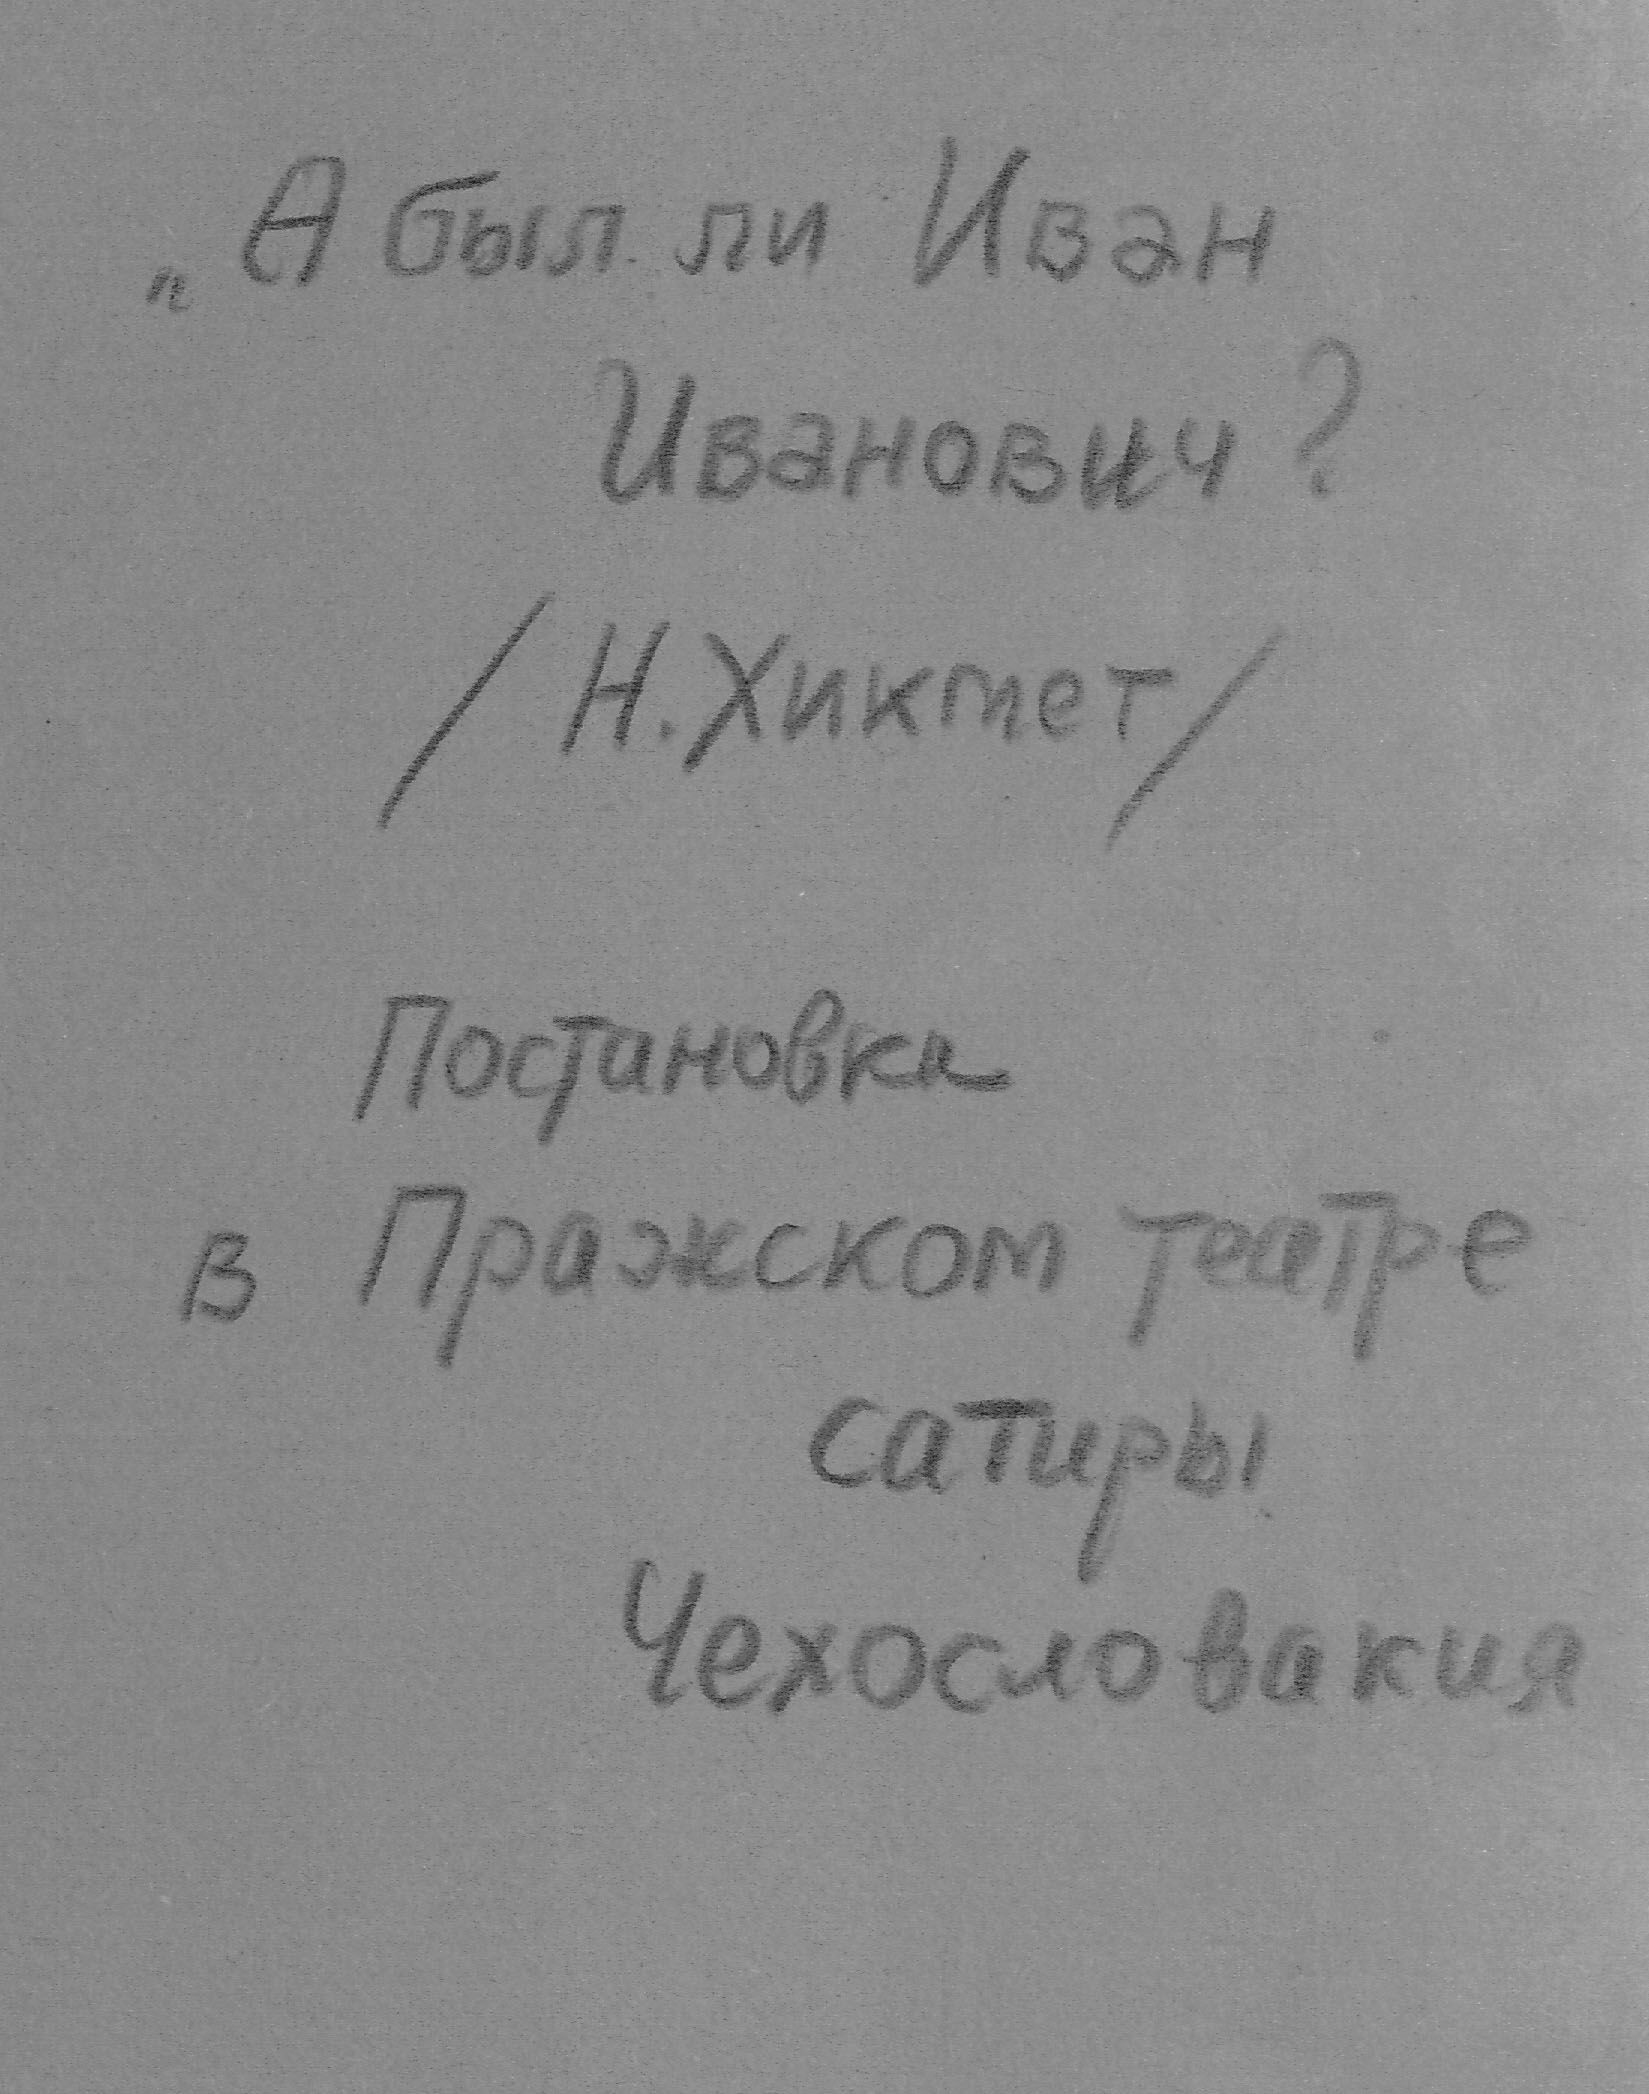 „А был ли Иван
Иванович?
/Н. Хикмет/
Постановка
в Пражском театре
сатиры
Чехословакия